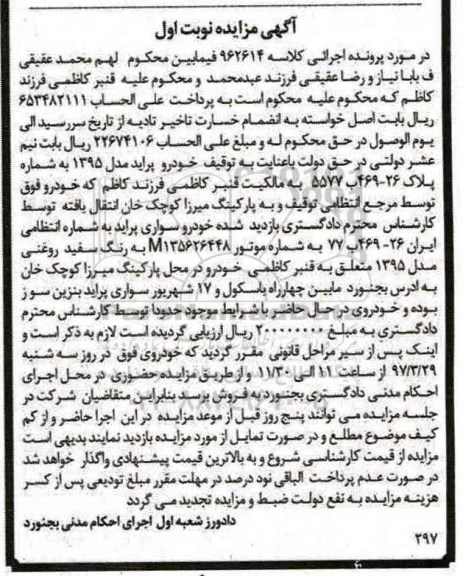 آگهی مزایده نوبت اول
در مورد پرونده اجرائی کلاسه ۹۶۲۶۱۴ فیمابین محکوم لهم محمد عقیقی
ف بابا نیاز و رضا عقیقی فرزند عبدمحمد و محکوم علیه قنبر کاظمی فرزند
کاظم که محکوم علیه محکوم است به پرداخت علی الحساب ۶۵۳۴۸۲۱۱۱
ریال بابت اصل خواسته به انضمام خسارت تاخیر تادیه از تاریخ سررسید الی
یوم الوصول در حق محکوم له و مبلغ علی الحساب ۲۲۶۷۴۱۰۶ ریال بابت نیم
عشر دولتی در حق دولت باعنایت به توقیف خودرو پراید مدل ۱۳۹۵ به شماره
پلاک ۲۶-۴۶۹ب ۵۵۷۷ به مالکیت قنبر کاظمی فرزند کاظم که خودرو فوق
توسط مرجع انتظامی توقیف و به پارکینگ میرزا کوچک خان انتقال یافته توسط
کارشناس محترم دادگستری بازدید شده خودرو سواری پراید به شماره انتظامی
ایران ۲۶- ۴۶۹ب ۷۷ به شماره موتور M۱۳۵۶۲۶۴۴۸ به رنگ سفید روغنی
مدل ۱۳۹۵ متعلق به قنبر کاظمی خودرو در محل پارکینگ میرزا کوچک خان
به ادرس بجنورد مابین چهارراه باسکول و ۱۷ شهریور سواری پراید بنزین سو ز
بوده و خودروی در حال حاضر با شرایط موجود حدودا توسط کارشناس محترم
دادگستری به مبلغ ۲۰۰۰۰۰۰۰۰ ریال ارزیابی گردیده است لازم به ذکر است و
اینک پس از سیر مراحل قانونی مقرر گردید که خودروی فوق در روز سه شنبه
۹۷/۳/۲۹ از ساعت ۱۱ الی ۱۱/۳۰ و از طریق مزایده حضوری در محل اجرای
احکام مدنی دادگستری بجنورد به فروش برسد بنابراین متقاضیان شرکت در
جلسه مزایده می توانند پنج روز قبل از موعد مزایده در این اجرا حاضر و از کم
کیف موضوع مطلع و در صورت تمایل از مورد مزایده بازدید نمایند بدیهی است
مزایده از قیمت کارشناسی شروع و به بالاترین قیمت پیشنهادی واگذار خواهد شد
در صورت عدم پرداخت الباقی نود درصد در مهلت مقرر مبلغ تودیعی پس از کسر
هزینه مزایده به نفع دولت ضبط و مزایده تجدید می گردد
دادورز شعبه اول اجرای احکام مدنی بجنورد
۲۹۷